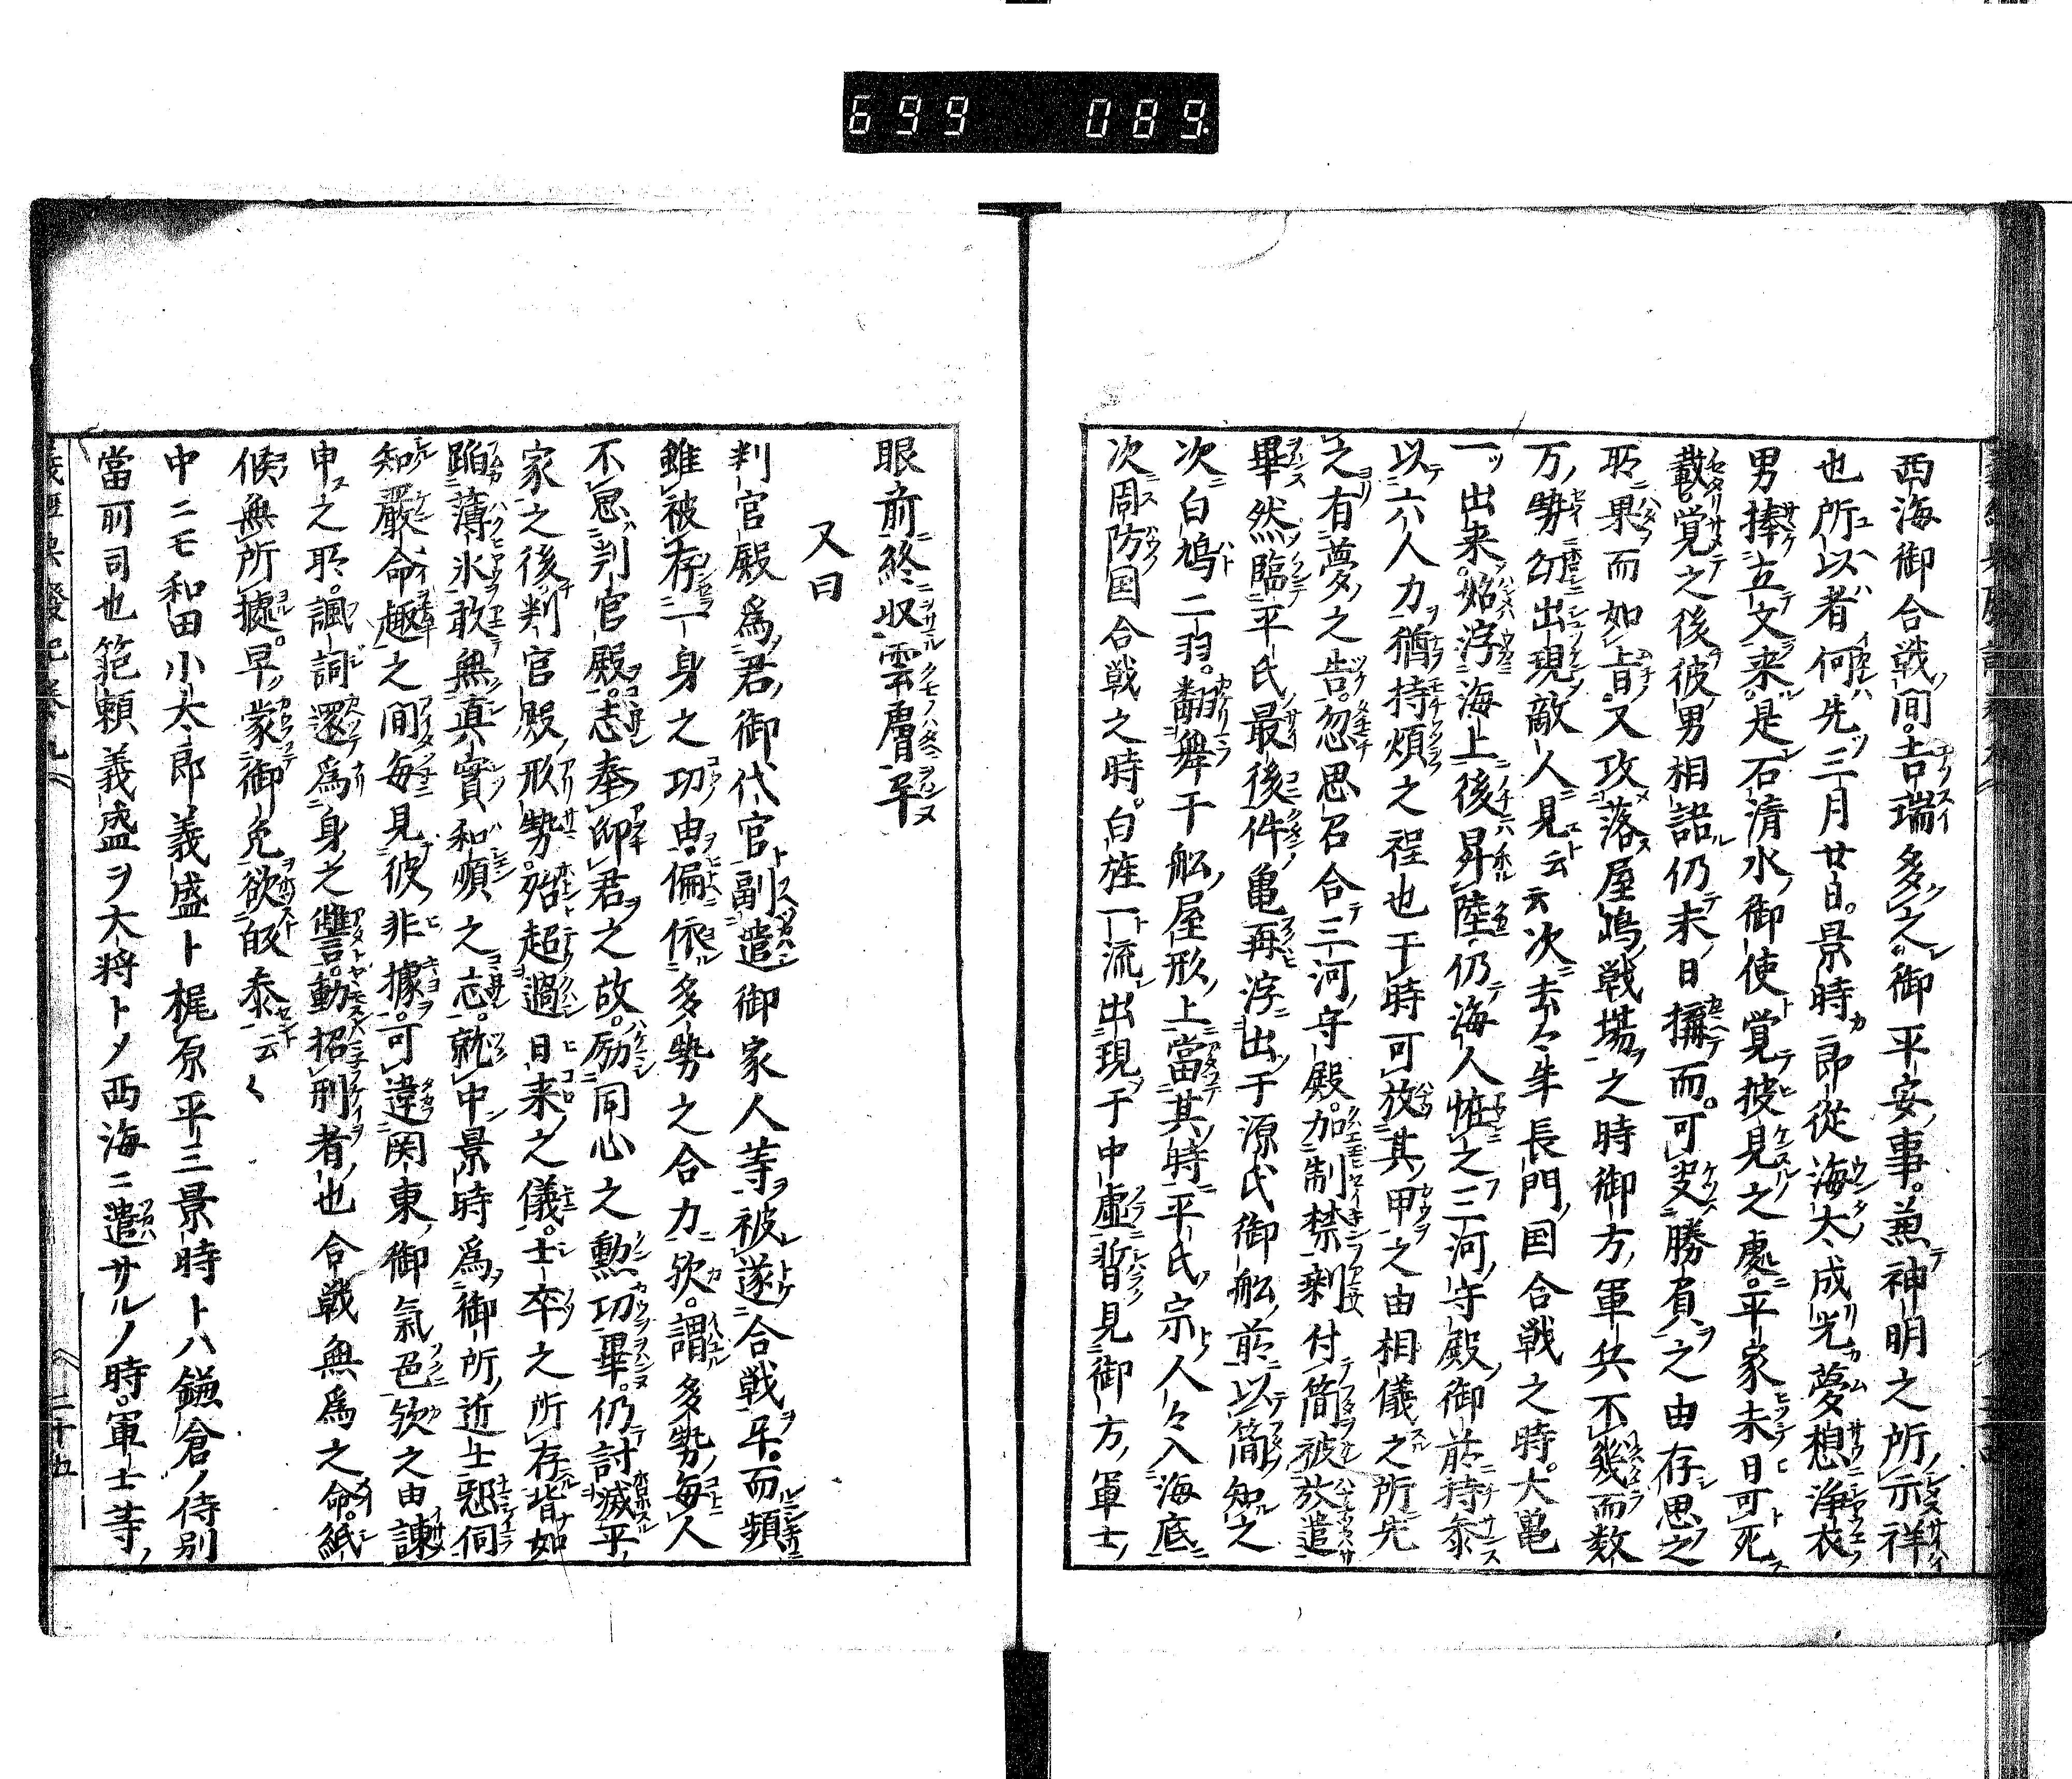 699 089
西海御合戦間。吉瑞多之。御平安事。兼神明之所示祥
也所以者何先三月廿日。景時郎從海太成光夢想浄衣
男捧立文来。是石清水御使覚披見之處。平家未日可死
載覚之後彼男相語仍未日構而。可決勝負之由存思之
処果而如旨。又攻落屋嶋戦場之時御方軍兵不幾而数
万勢幻出現敵人見云云次去々年長門国合戦之時。大亀
一出来。始浮海上後昇陸仍海人恠之三河守殿御前持参
以六人力猶持煩之程也于時可放其甲之由相儀之所先
之有夢之告。忽思召合三河守殿。加制禁剰付簡被放遣
畢然臨平氏最後件亀再浮出于源氏御舩前以簡知之
次白鳩二羽。翻舞于舩屋形上當其時平氏宗人々入海底
次周防国合戦之時。白旌一流出現于中虚暫見御方軍士
眼前終収雲膚畢
又曰
判官殿爲君御代官副遣御家人等被遂合戦畢。而頻
雖被存一身之功由偏依多勢之合力欤。謂多勢毎人
不思判官殿。志奉仰君之故。励同心之勲功畢。仍討滅平
家之後判官殿形勢。殆超過日来之儀。士卒之所存皆如
踏薄氷敢無真實和順之志。就中景時爲御所近士憖伺
知嚴命趣之間毎見彼非據。可違関東御氣色欤之由諫
申之処。諷詞還爲身之讐。動招刑者也合戦無爲之命。紙
候無所據。早蒙御免欲皈参云〱
中ニモ和田小太郎義盛ト梶原平三景時トハ鎌倉ノ侍別
當所司也範頼義盛ヲ大将トメ西海ニ遣サルノ時。軍士等
二十五